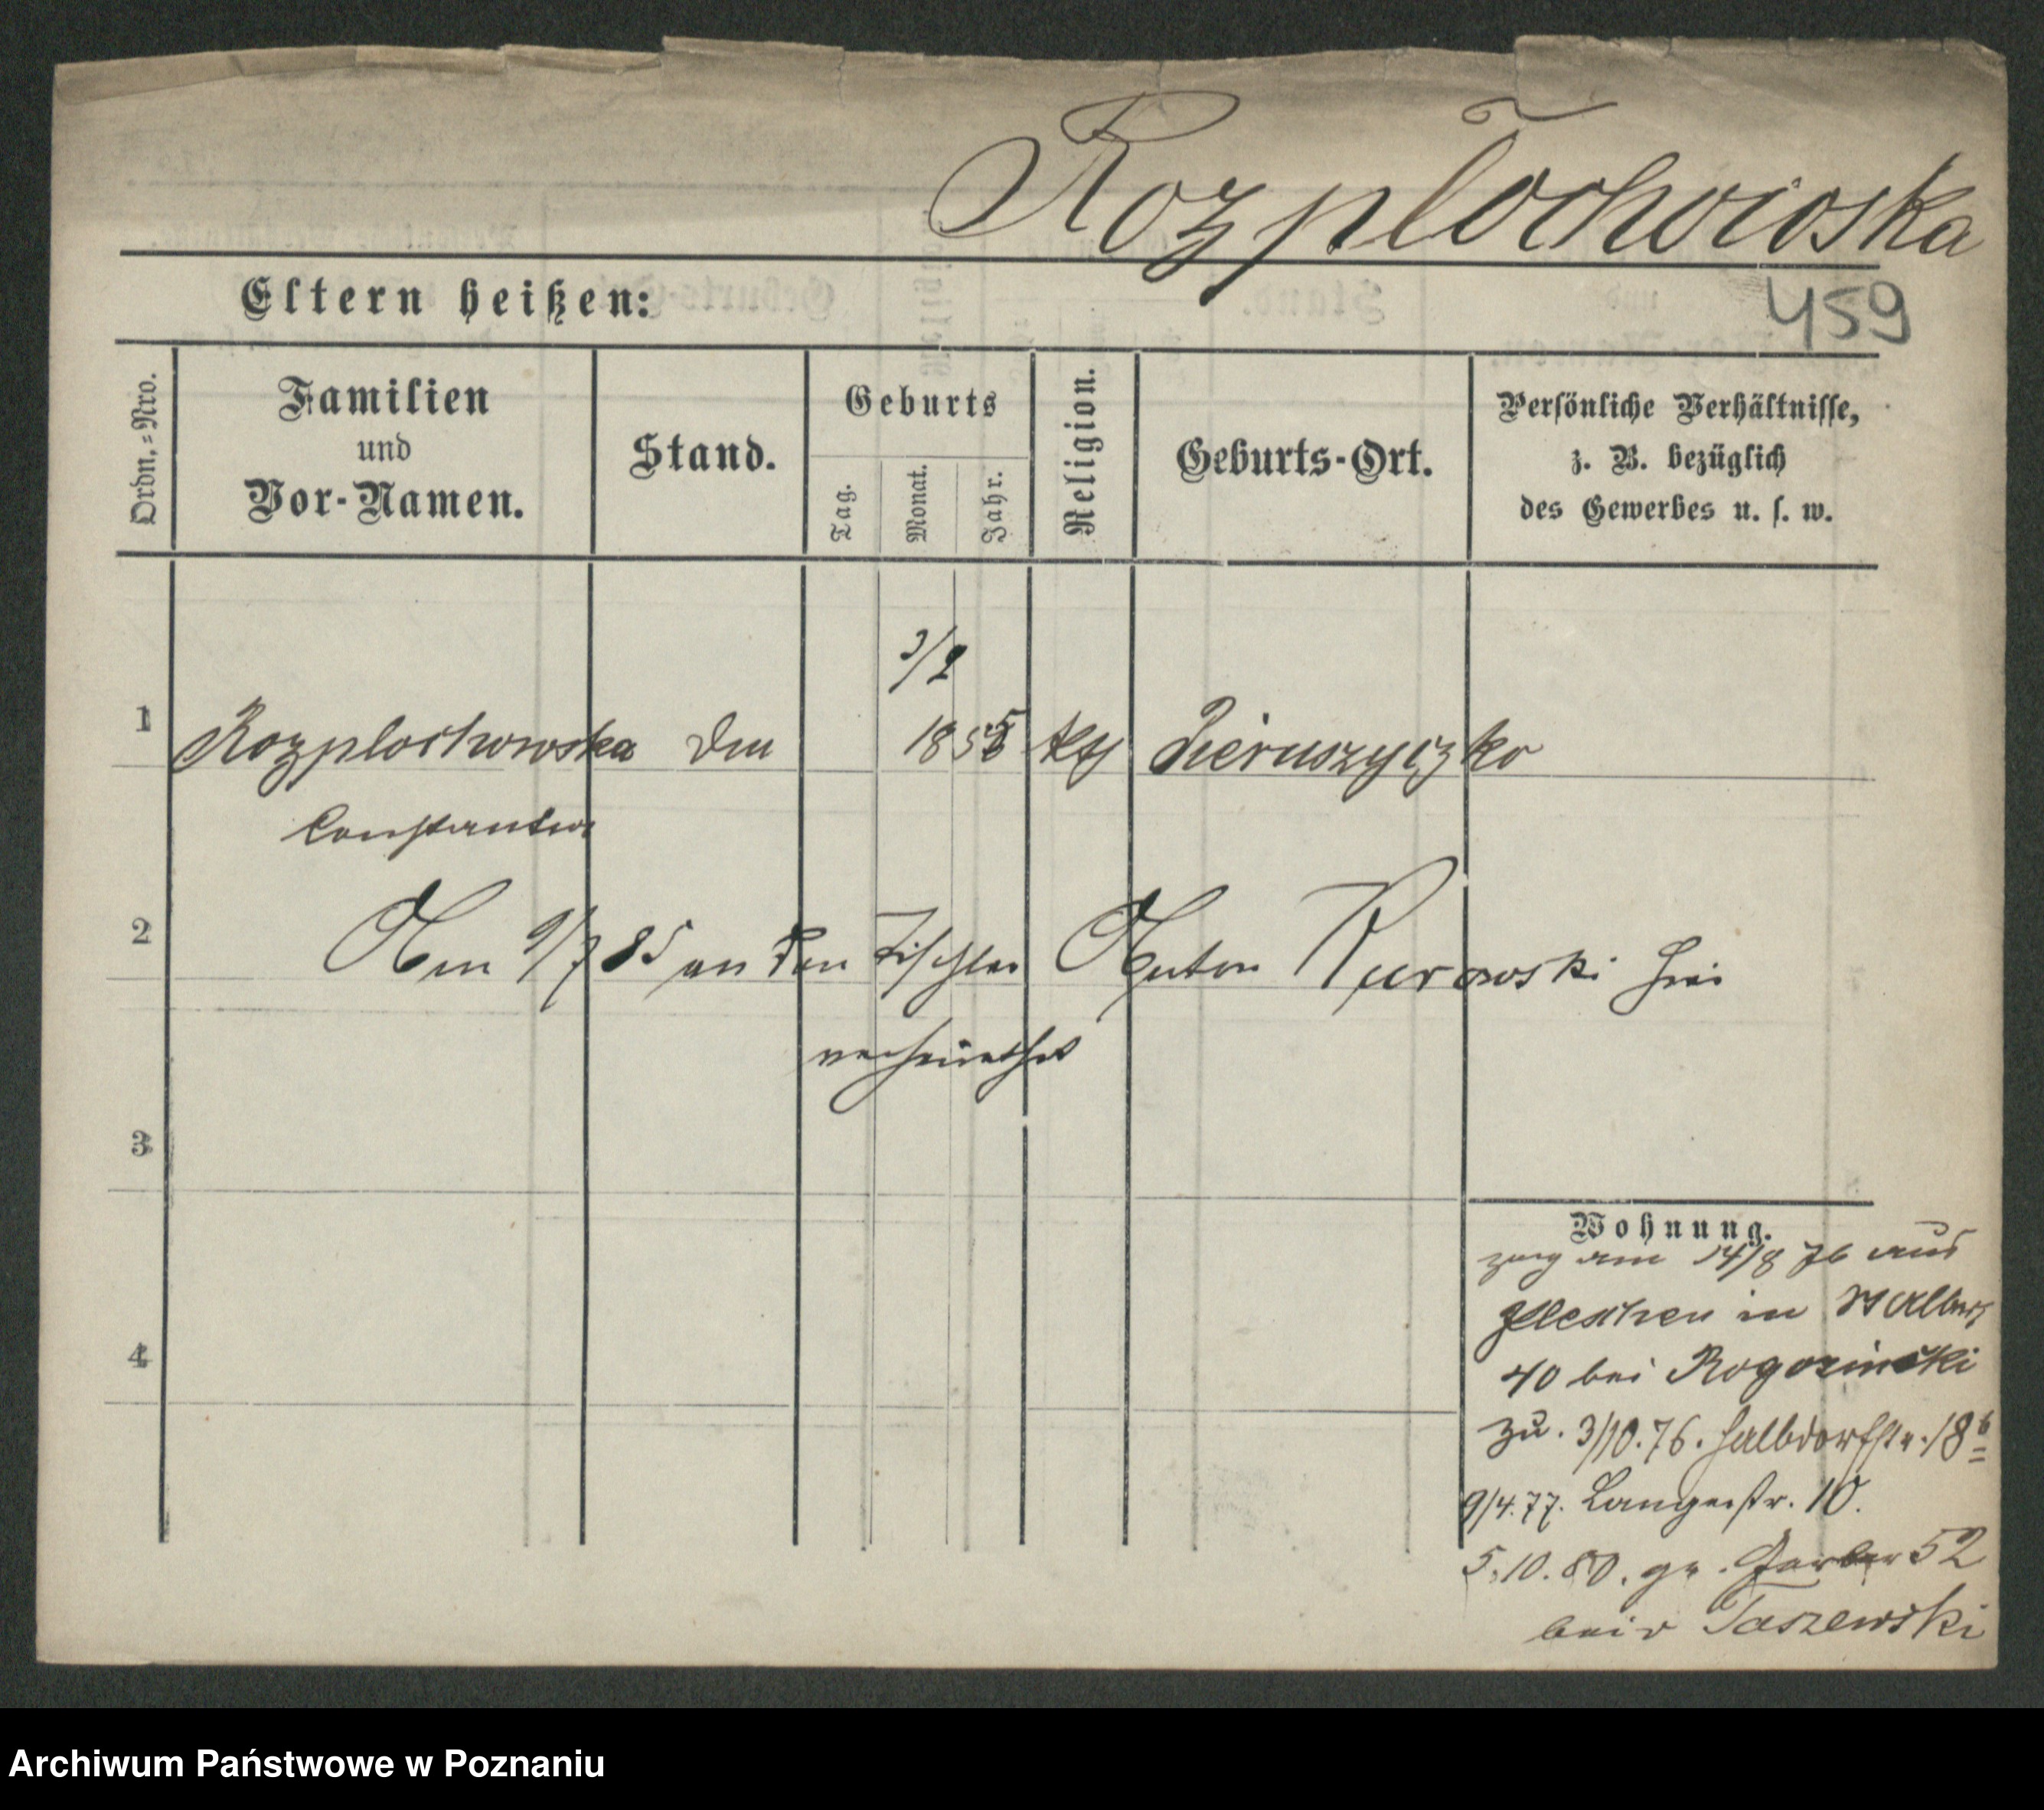 Rozpłochowska
459
Eltern heißen:
Ordn.=Nro.
Familien
und
Vor-Namen.
Stand.
Geburts
Tag.
Monat.
Jahr.
Religion.
Geburts-Ort.
Persönliche Verhältnisse,
z. B. bezüglich
des Gewerbes u. s. w.
3/2
1 Rozplochowska 1855 kth
Constantia
2 Am 9/7 85 an den Tischler Anton Kurowski hier
verheirathet
3
4
Wohnung.
zug am 14/8 76 aus
Pleschen in
40 bei Rogozinski
zu. 3/10.76. Halbdorfstr. 18b
9/4.77. Langestr. 10.
5.10.80. gr. Gerber 52
bei Taszewski
Archiwum Państwowe w Poznaniu